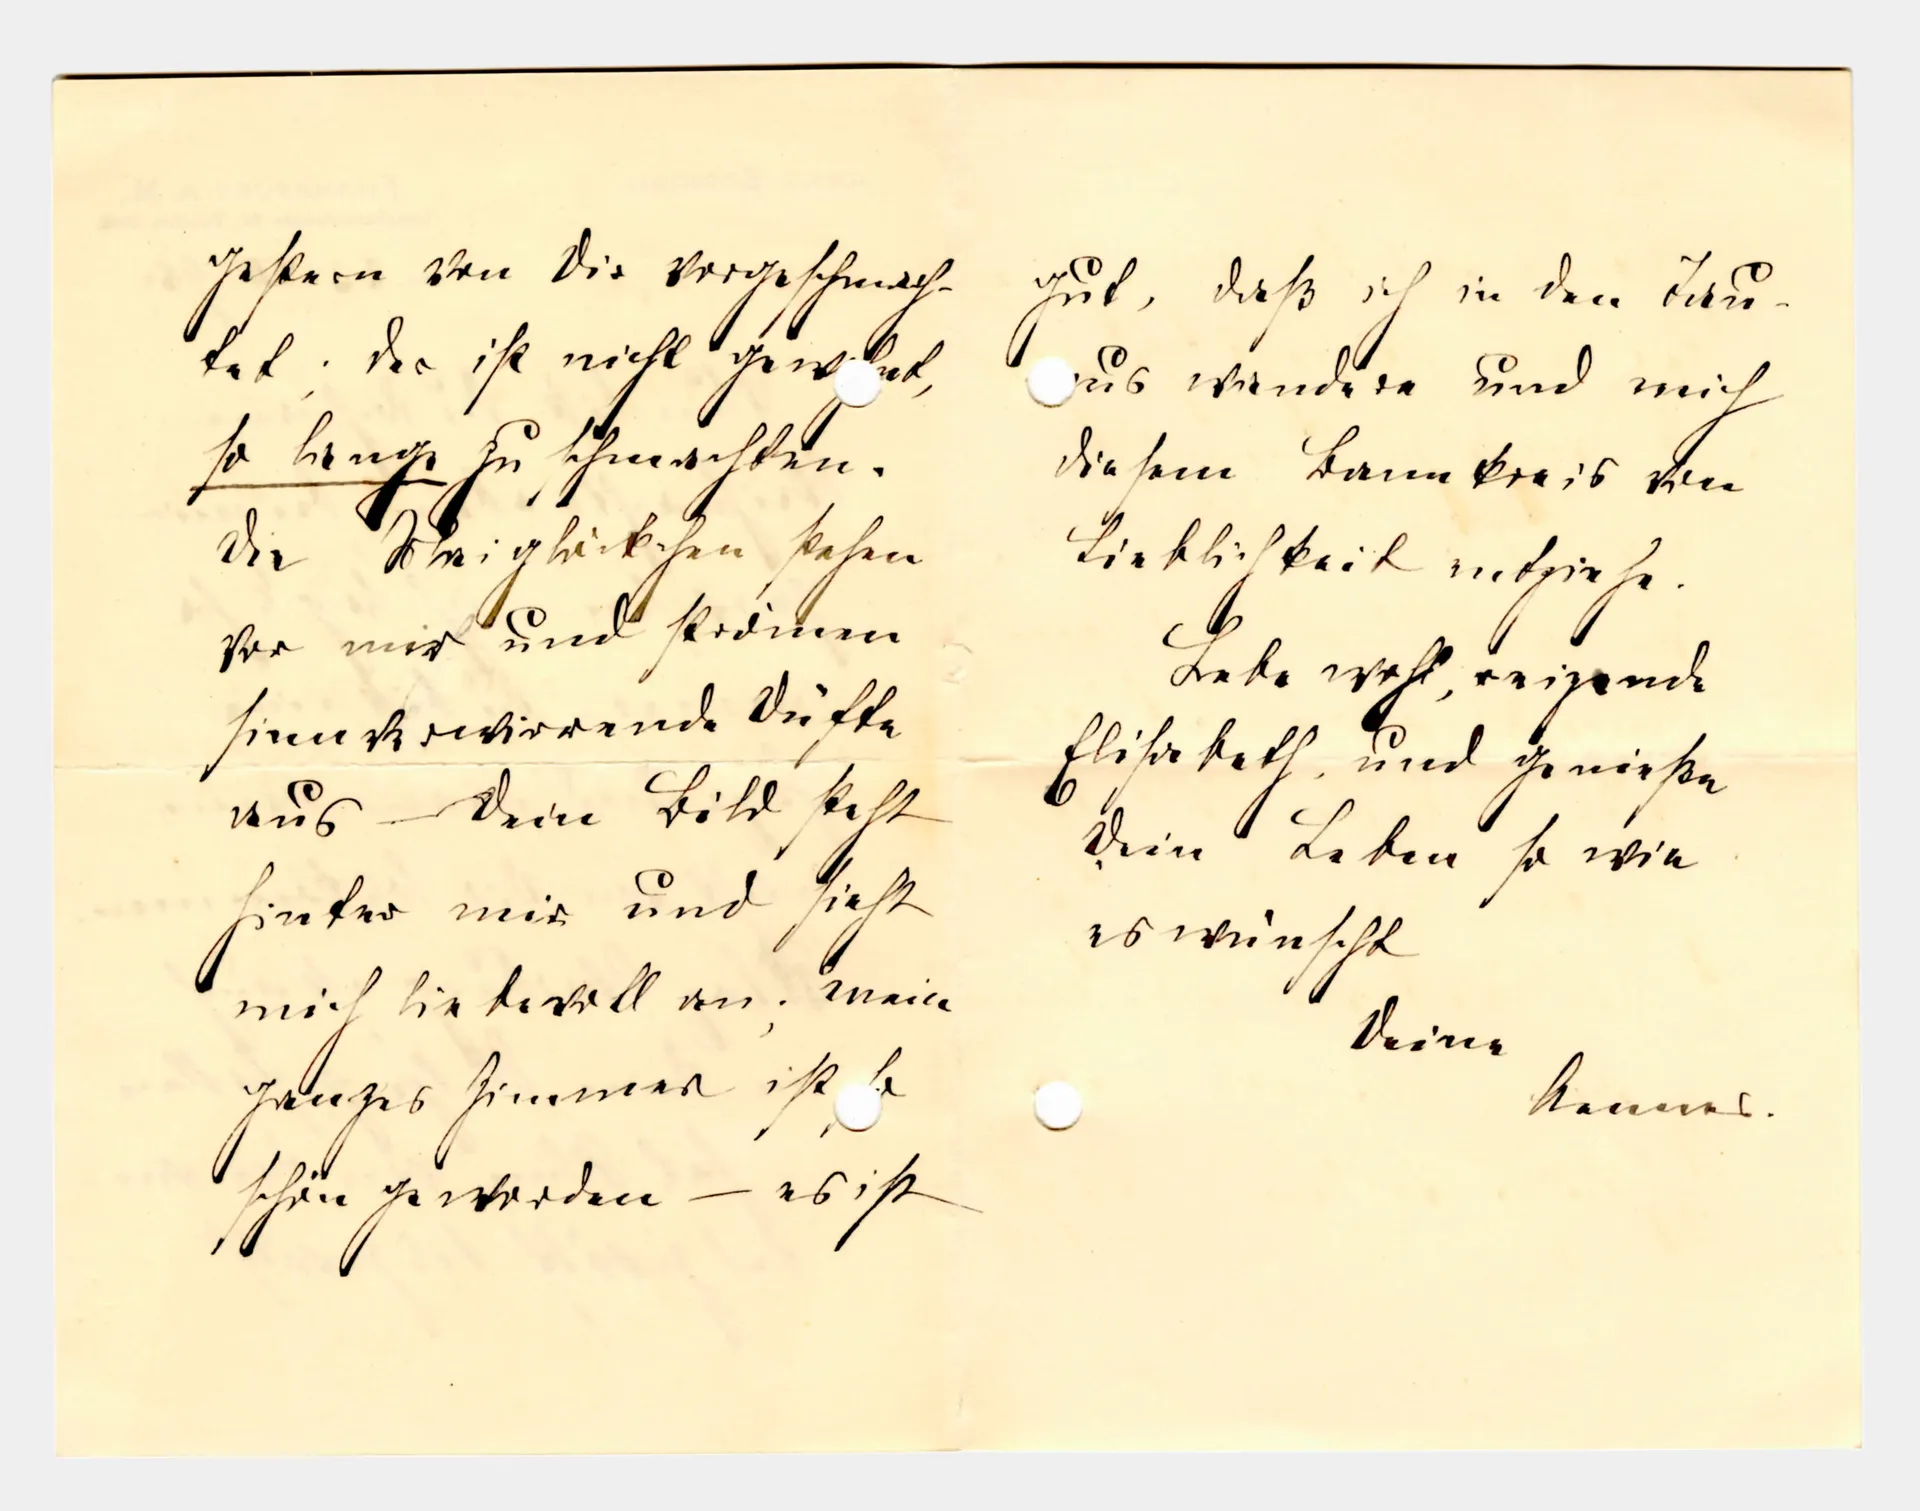 gestern von Dir vorgeschmach-
tet; der ist nicht gewohnt,
so lange zu schmachten.
Die Maiglöckchen stehen
vor mir und strömen
sinnverwirrende Düfte
aus — Dein Bild steht
hinter mir und sieht
mich liebevoll an; mein
ganzes Zimmer ist so
schön geworden — es ist
gut, daß ich in den Tau-
nus wandere und mich
diesem Bannkreis von
Lieblichkeit entziehe.
Lebe wohl, reizende
Elisabeth, und genieße
Dein Leben so wie
es wünscht
Deine